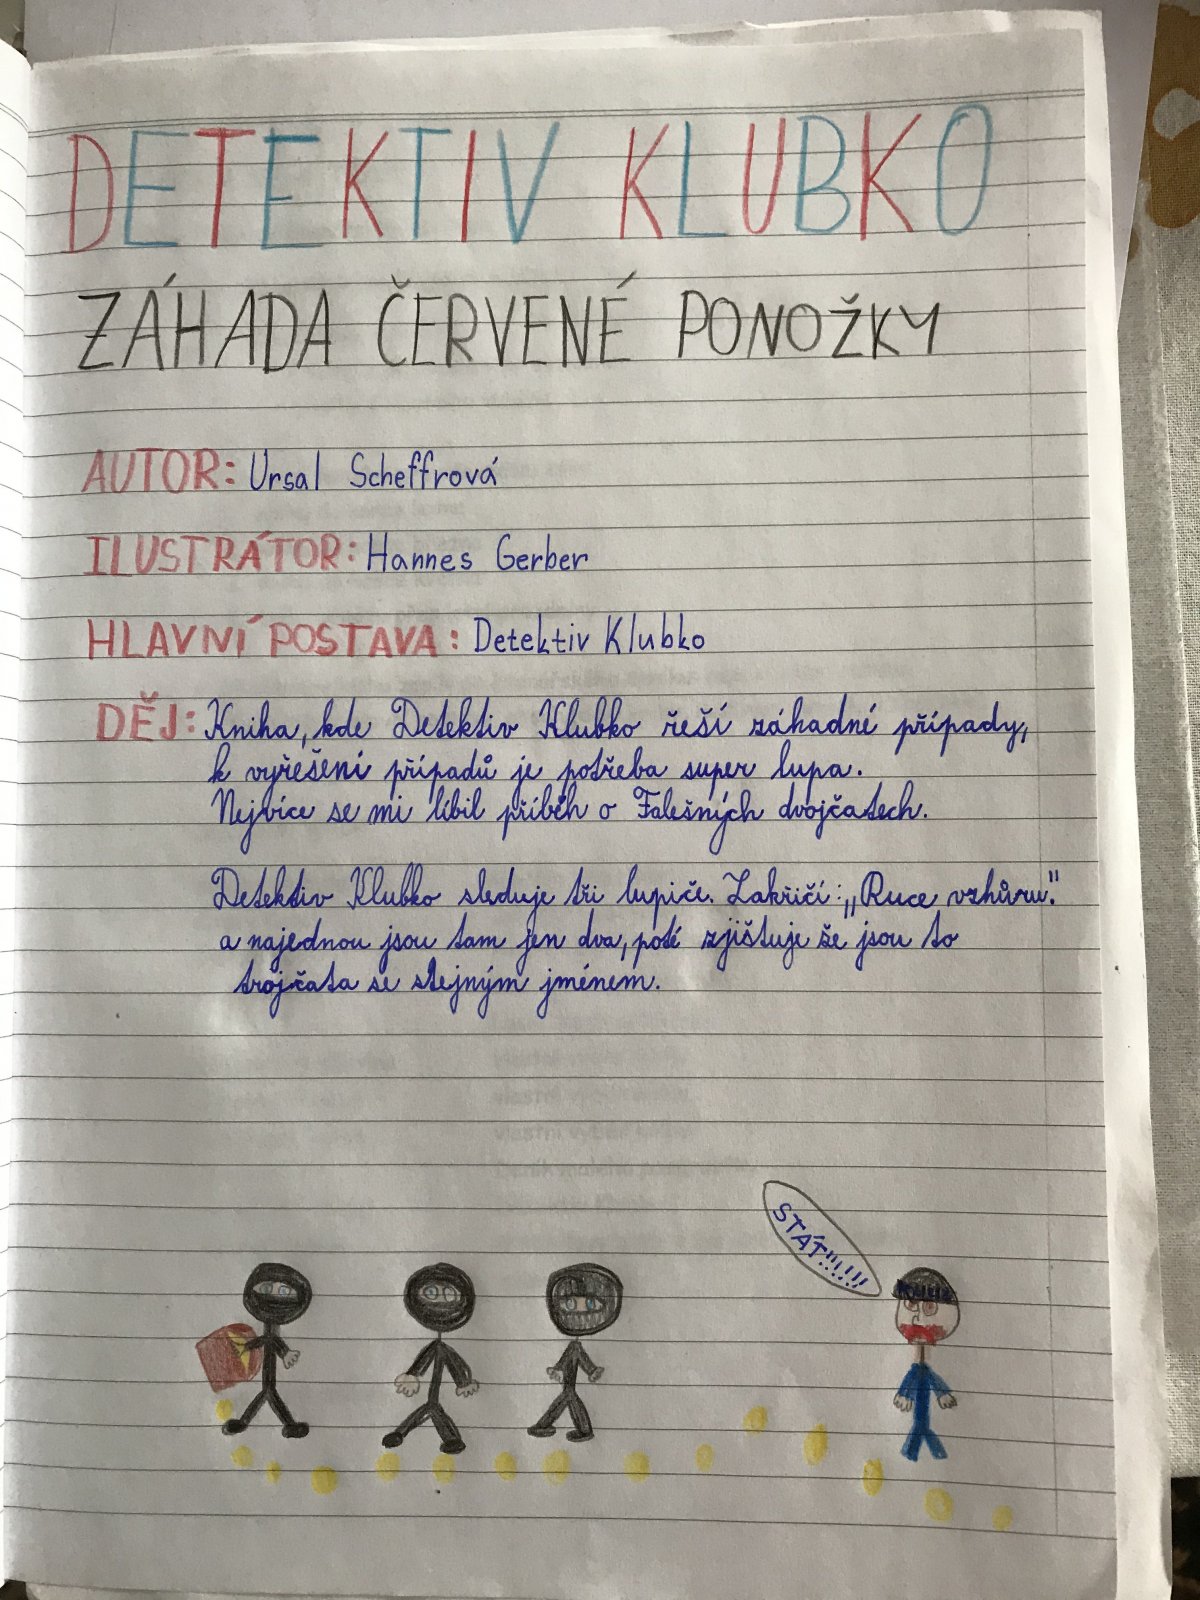 DETEKTIV KLUBKO
ZÁHADA ČERVENÉ PONOŽKY
AUTOR: Ursal Scheffrová
ILUSTRÁTOR: Hannes Gerber
HLAVNÍ POSTAVA: Detektiv Klubko
DĚJ: Kniha, kde Detektiv Klubko řeší záhadné případy,
k vyřešení případů je potřeba super lupa.
Nejvíce se mi líbil příběh o Falešných dvojčatech.
Detektiv Klubko sleduje tři lupiče. Zakřičí: „Ruce vzhůru."
a najednou jsou tam jen dva, poté zjištuje že jsou to
trojčata se stejným jménem.
STÁT!!!!!!